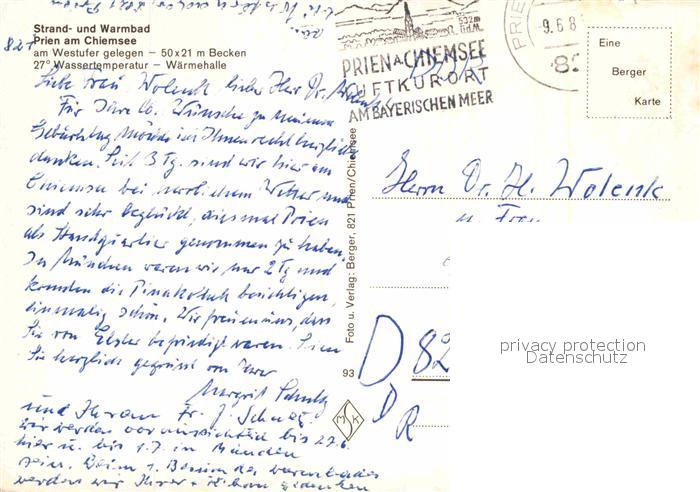 Strand- und Warmbad
Prien am Chiemsee
am Westufer gelegen — 50x21 m Becken
27° Wassertemperatur — Wärmehalle
Liebe Frau Wolenk, lieber Herr Dr. Wolenk
Für Ihre lb. Wünsche zu meinem
Geburtstag möchte ich Ihnen recht herzlich
danken. Seit 3 Tg. sind wir hier am
Chiemsee bei Wetter und
sind sehr beglückt, diesmal Prien
als Standquartier genommen zu haben.
In München waren wir nur 2 Tg und
konnten die Pinakothek besichtigen,
einmalig schön. Wir freuen uns, dass
Sie von Elster befriedigt waren. Seien
Sie herzlich gegrüsst von Ihrer
Margrit
und Ihrem Fr. J.
wir werden voraussichtlich bis 27.6.
hier u. bis 1.7. in München
sein. Beim 1.
werden wir Ihrer gedenken
532m
ü.d.M.
PRIEN A. CHIEMSEE
LUFTKURORT
AM BAYERISCHEN MEER
PRIE
-9.6.8
Eine
Berger
Karte
Foto u. Verlag: Berger, 821 Prien/Chiemsee
93
MSK
Herrn Dr. H. Wolenk
u. Frau
D 82
DR
privacy protection
Datenschutz